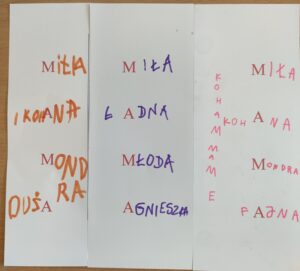 MIŁA
I KOHANA
MOND
RA
DUŠA
MIŁA
ŁADNA
MŁODA
AGNIESZKA
MIŁA
KOHANA
MONDRA
FAJNA
KOHAM MAME